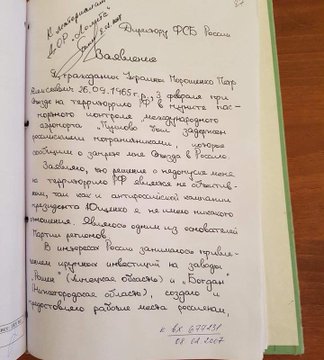 27
К материалам
ДОР "
2007
Директору ФСБ России
Заявление
Я, гражданин Украины Порошенко Петр
Алексеевич 26.09.1965 г.р., 3 февраля при
въезде на территорию РФ в пункте пас-
портного контроля международного
аэропорта "Пулково" был задержан
российскими пограничниками, которые
сообщили о запрете мне въезда в Россию.
Заявляю, что решение о недопуске меня
на территорию РФ является не объектив-
ным, так как к антироссийской кампании
президента Ющенко я не имею никакого
отношения. Являюсь одним из основателей
Партии регионов.
В интересах России занимаюсь привле-
чением крупных инвестиций на заводы
"Рошен" (Липецкая область) и "Богдан"
(Нижегородская область), создаю и
предоставляю рабочие места россиянам,
к вх 679431
08 02 2007